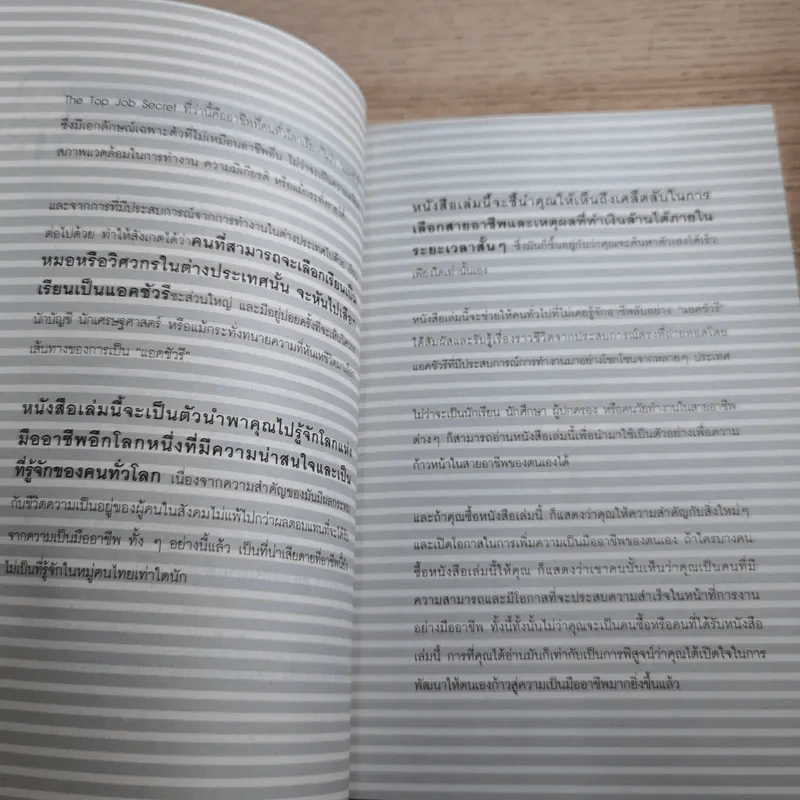 The Top Job Secret ที่ว่านี้คืออาชีพที่คนทั่วโลก
ซึ่งมีเอกลักษณ์เฉพาะตัวที่ไม่เหมือนอาชีพอื่น ไม่ว่าจะเป็น
สภาพแวดล้อมในการทำงาน ความมีเกียรติ หรือแม้กระทั่งรายได้
และจากการที่มีประสบการณ์จากการทำงานในต่างประเทศ
ต่อไปด้วย ทำให้สังเกตได้ว่าคนที่สามารถจะเลือกเรียนเป็น
หมอหรือวิศวกรในต่างประเทศนั้น จะหันไปเลือก
เรียนเป็นแอคชัวรีซะส่วนใหญ่ และมีอยู่บ่อยครั้งที่จะเห็น
นักบัญชี นักเศรษฐศาสตร์ หรือแม้กระทั่งทนายความที่หันเหชีวิตมา
เส้นทางของการเป็น "แอคชัวรี"
หนังสือเล่มนี้จะเป็นตัวนำพาคุณไปรู้จักโลกแห่ง
มืออาชีพอีกโลกหนึ่งที่มีความน่าสนใจและเป็น
ที่รู้จักของคนทั่วโลก เนื่องจากความสำคัญของมันมีผลกระทบ
กับชีวิตความเป็นอยู่ของผู้คนในสังคมไม่แพ้ไปกว่าผลตอบแทนที่จะได้
จากความเป็นมืออาชีพ ทั้ง ๆ อย่างนี้แล้ว เป็นที่น่าเสียดายที่อาชีพนี้
ไม่เป็นที่รู้จักในหมู่คนไทยเท่าใดนัก
หนังสือเล่มนี้จะชี้นำคุณให้เห็นถึงเคล็ดลับในการ
เลือกสายอาชีพและเหตุผลที่ทำเงินล้านได้ภายใน
ระยะเวลาสั้นๆ ซึ่งมันก็ขึ้นอยู่กับว่าคุณจะค้นหาตัวเองได้เร็ว
เพียงใดเท่านั้นเอง
หนังสือเล่มนี้จะช่วยให้คนทั่วไปที่ไม่เคยรู้จักอาชีพลับอย่าง "แอคชัวรี"
ได้สัมผัสและรับรู้เรื่องราวชีวิตจากประสบการณ์ตรงที่ถ่ายทอดโดย
แอคชัวรีที่มีประสบการณ์การทำงานมาอย่างโชกโชนจากหลายๆ ประเทศ
ไม่ว่าจะเป็นนักเรียน นักศึกษา ผู้ปกครอง หรือคนวัยทำงานในสายอาชีพ
ต่างๆ ก็สามารถอ่านหนังสือเล่มนี้เพื่อนำมาใช้เป็นตัวอย่างเพื่อความ
ก้าวหน้าในสายอาชีพของตนเองได้
และถ้าคุณซื้อหนังสือเล่มนี้ ก็แสดงว่าคุณให้ความสำคัญกับสิ่งใหม่ๆ
และเปิดโอกาสในการเพิ่มความเป็นมืออาชีพของตนเอง ถ้าใครบางคน
ซื้อหนังสือเล่มนี้ให้คุณ ก็แสดงว่าเขาคนนั้นเห็นว่าคุณเป็นคนที่มี
ความสามารถและมีโอกาสที่จะประสบความสำเร็จในหน้าที่การงาน
อย่างมืออาชีพ ทั้งนี้ทั้งนั้นไม่ว่าคุณจะเป็นคนซื้อหรือคนที่ได้รับหนังสือ
เล่มนี้ การที่คุณได้อ่านมันก็เท่ากับเป็นการพิสูจน์ว่าคุณได้เปิดใจในการ
พัฒนาให้ตนเองก้าวสู่ความเป็นมืออาชีพมากยิ่งขึ้นแล้ว